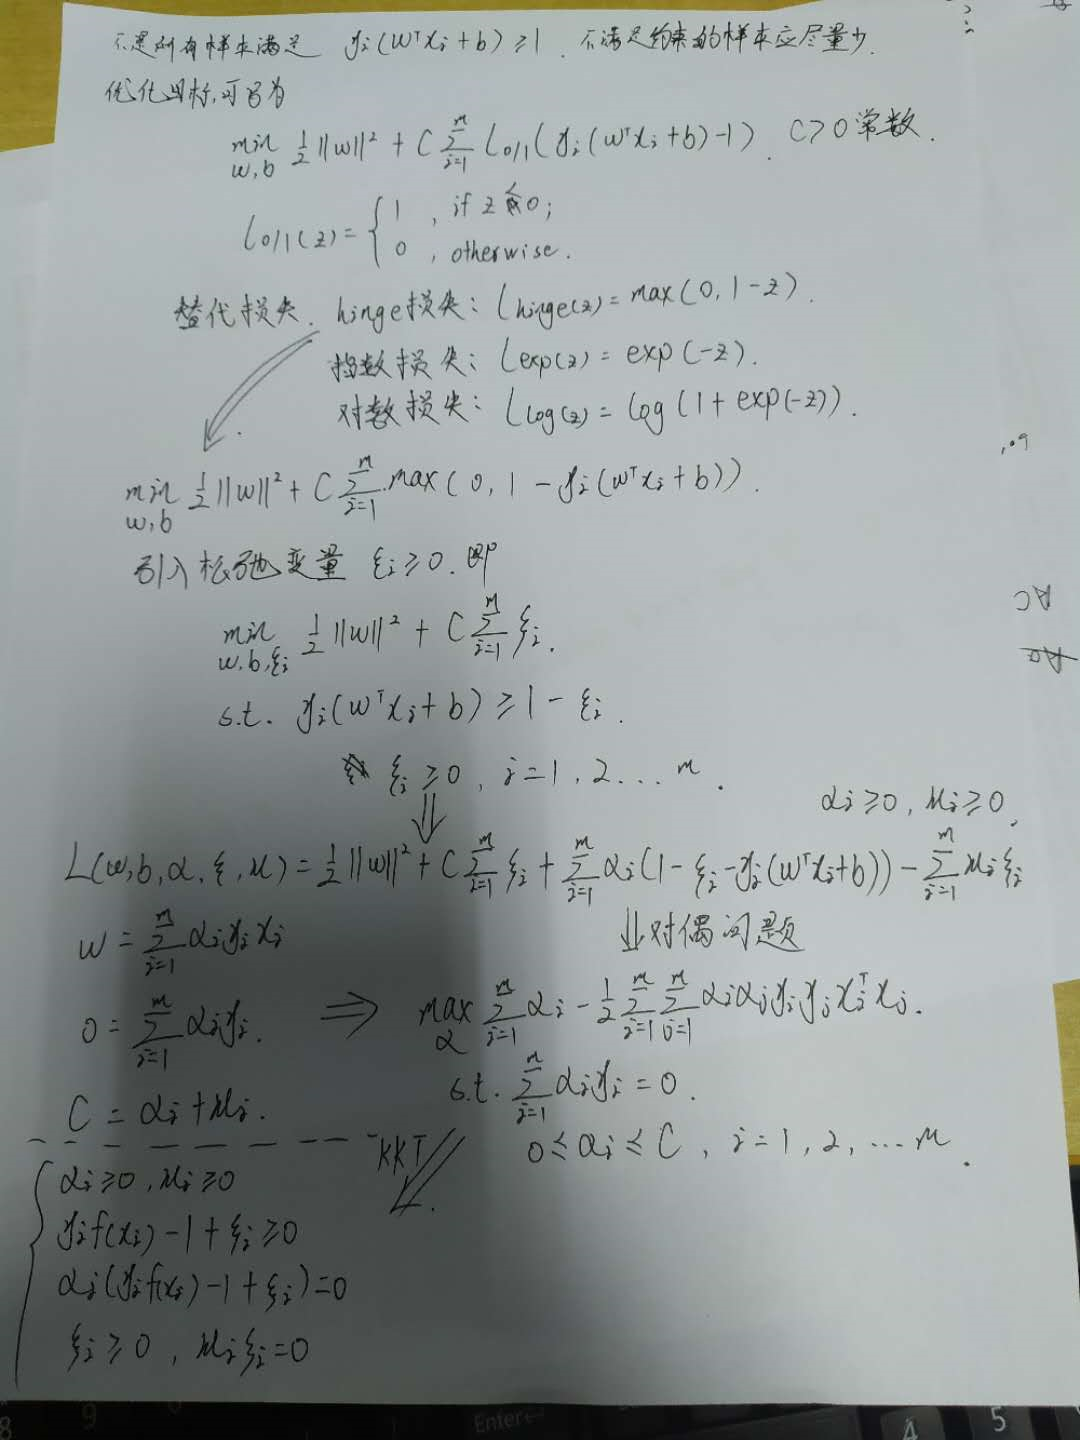 不是所有样本满足 yᵢ(wᵀxᵢ+b)≥1. 不满足约束的样本应尽量少.
优化目标,可写为
min_{w,b} ½||w||² + C Σ_{i=1}^{m} l_{0/1}(yᵢ(wᵀxᵢ+b)-1). C>0常数.
l_{0/1}(z) = { 1 , if z<0;
0 , otherwise.
替代损失. hinge损失: l_{hinge(z)} = max(0, 1-z).
指数损失: l_{exp(z)} = exp(-z).
对数损失: l_{log(z)} = log(1+exp(-z)).
min_{w,b} ½||w||² + C Σ_{i=1}^{m} max(0, 1-yᵢ(wᵀxᵢ+b)).
引入松弛变量 ξᵢ≥0. 即
min_{w,b,ξᵢ} ½||w||² + C Σ_{i=1}^{m} ξᵢ.
s.t. yᵢ(wᵀxᵢ+b) ≥ 1-ξᵢ.
ξᵢ≥0, i=1,2...m.
⇓
αᵢ≥0, μᵢ≥0.
L(w,b,α,ξ,μ) = ½||w||² + C Σ_{i=1}^{m} ξᵢ + Σ_{i=1}^{m} αᵢ(1-ξᵢ-yᵢ(wᵀxᵢ+b)) - Σ_{i=1}^{m} μᵢξᵢ
w = Σ_{i=1}^{m} αᵢyᵢxᵢ
0 = Σ_{i=1}^{m} αᵢyᵢ.
C = αᵢ+μᵢ.
⇓对偶问题
⇒ max_{α} Σ_{i=1}^{m} αᵢ - ½ Σ_{i=1}^{m} Σ_{j=1}^{m} αᵢαⱼyᵢyⱼxᵢᵀxⱼ.
s.t. Σ_{i=1}^{m} αᵢyᵢ = 0.
0≤αᵢ≤C, i=1,2,...m.
KKT
{ αᵢ≥0, μᵢ≥0
yᵢf(xᵢ)-1+ξᵢ≥0
αᵢ(yᵢf(xᵢ)-1+ξᵢ)=0
ξᵢ≥0, μᵢξᵢ=0
AC
Enter
4
5
8
9